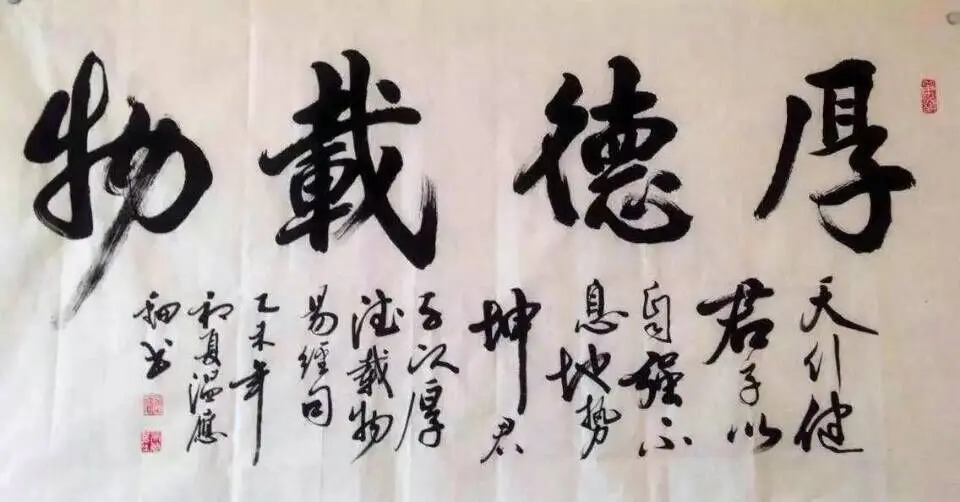 厚德載物
天行健
君子以
自强不
息地势
坤君
子以厚
德載物
易經句
乙未年
初夏温應
书